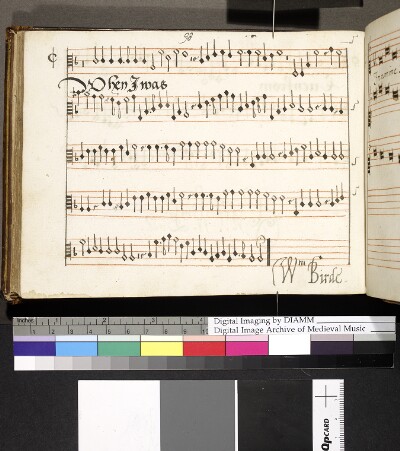 93
When I was
Wm Birde
inches 1 2 3 4
Digital Imaging by DIAMM
Digital Image Archive of Medieval Music
QPCARD